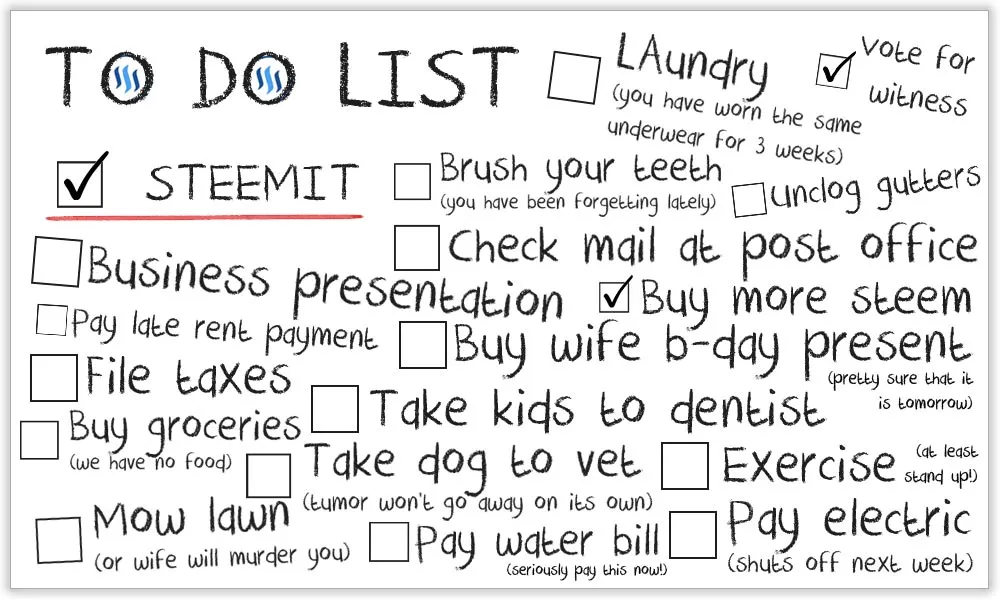 TO DO LIST
LAundry
(you have worn the same
underwear for 3 weeks)
Vote for
witness
STEEMIT
Brush your teeth
(you have been forgetting lately)
unclog gutters
Business presentation
Check mail at post office
Buy more steem
Pay late rent payment
Buy wife b-day present
(pretty sure that it
is tomorrow)
File taxes
Take kids to dentist
Buy groceries
(we have no food)
Take dog to vet
(tumor won't go away on its own)
Exercise
(at least
stand up!)
Mow lawn
(or wife will murder you)
Pay water bill
(seriously pay this now!)
Pay electric
(shuts off next week)